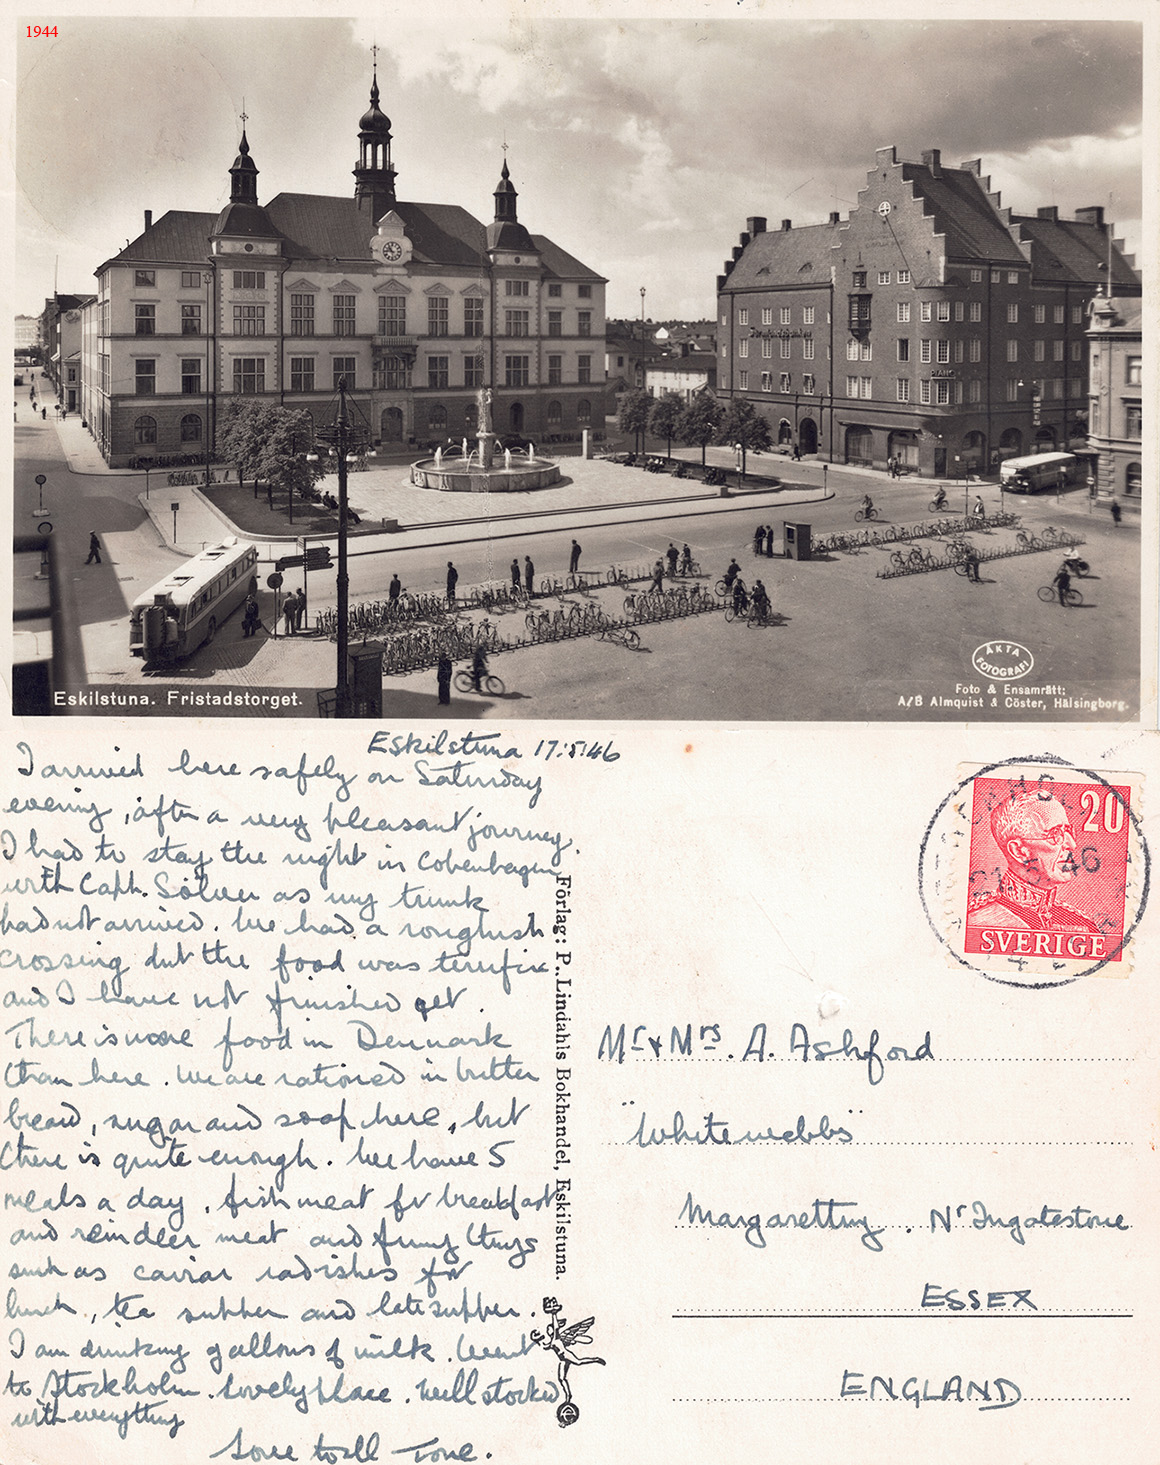 1944
ÄKTA
FOTOGRAFI
Foto & Ensamrätt:
A/B Almquist & Cöster, Hälsingborg.
Eskilstuna. Fristadstorget.
Eskilstuna 17:5:46
I arrived here safely on Saturday
evening, after a very pleasant journey.
I had to stay the night in Cobenhagen
with Capt. Sölver as my trunk
had not arrived. We had a roughish
crossing but the food was terrific
and I have not finished yet.
There is more food in Denmark
than here. We are rationed in butter
bread, sugar and soap here, but
there is quite enough. We have 5
meals a day, fish meat for breakfast
and reindeer meat and funny things
such as caviar radishes for
lunch, tea supper and late supper.
I am drinking gallons of milk. Went
to Stockholm. Lovely place. Well stocked
with everything
Love to all Tone.
Förlag: P. Lindahls Bokhandel, Eskilstuna.
20
SVERIGE
46
Mr & Mrs. A. Ashford
"Whitewebbs"
Margaretting. Nr Ingatestone
ESSEX
ENGLAND